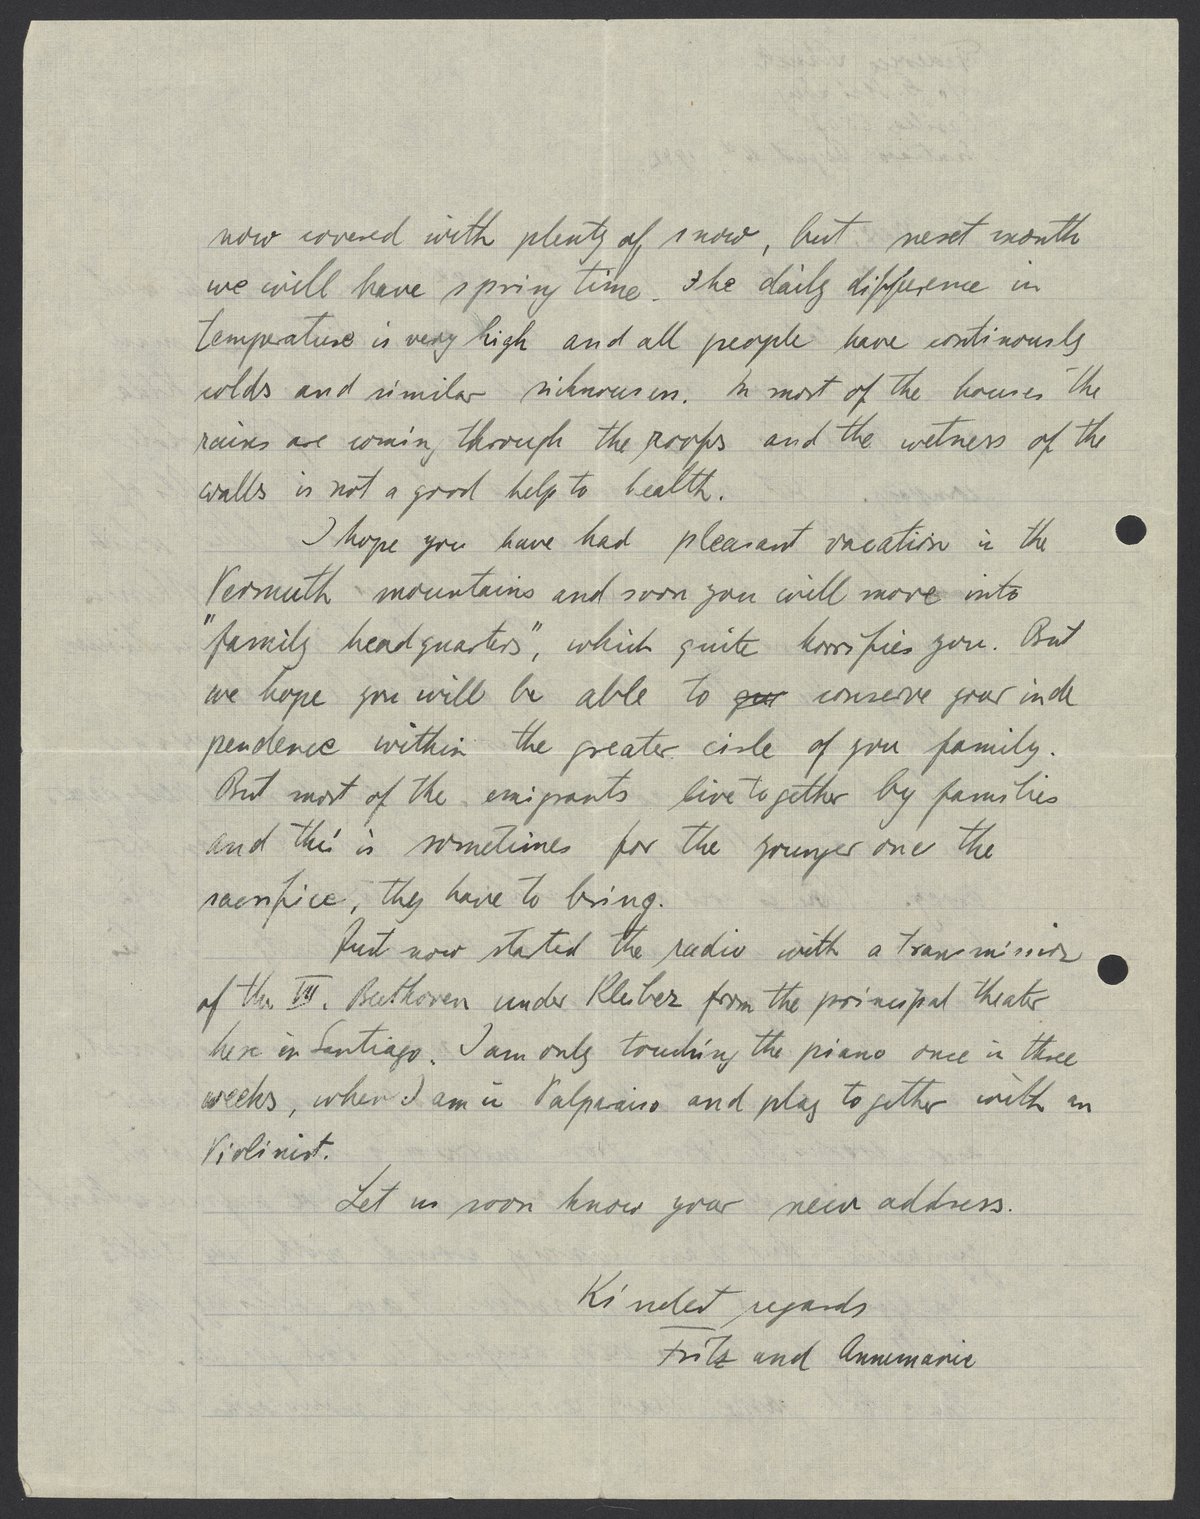 now covered with plenty of snow, but next month
we will have spring time. The daily difference in
temperature is very high and all people have continously
colds and similar sicknouses. In most of the houses the
rains are coming through the roofs and the wetness of the
walls is not a good help to health.
I hope you have had pleasant vacation in the
Vermuth mountains and soon you will move into
"family headquarters", which quite horrifies you. But
we hope you will be able to conserve your inde
pendence within the greater cisle of you family.
But most of the emigrants live together by families
and this is sometimes for the younger one the
sacrifice, they have to bring.
Just now started the radio with a transmission
of the III. Beethoven under Kleiber from the principal theater
here in Santiago. I am only touching the piano once in three
weeks, when I am in Valparaiso and play together with an
Violinist.
Let us soon know your new address.
Kindest regards
Fritz and Annemarie